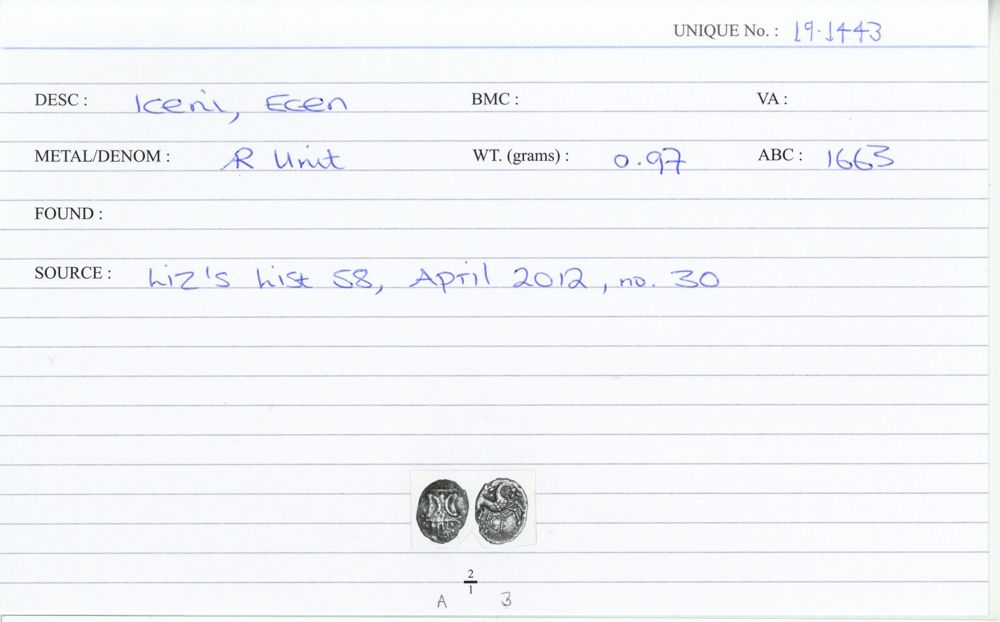 UNIQUE No. : 19.1443
DESC : Iceni, Ecen BMC : VA :
METAL/DENOM : R Unit WT. (grams) : 0.97 ABC : 1663
FOUND :
SOURCE : Liz's List 58, April 2012, no. 30
2
1
A 3